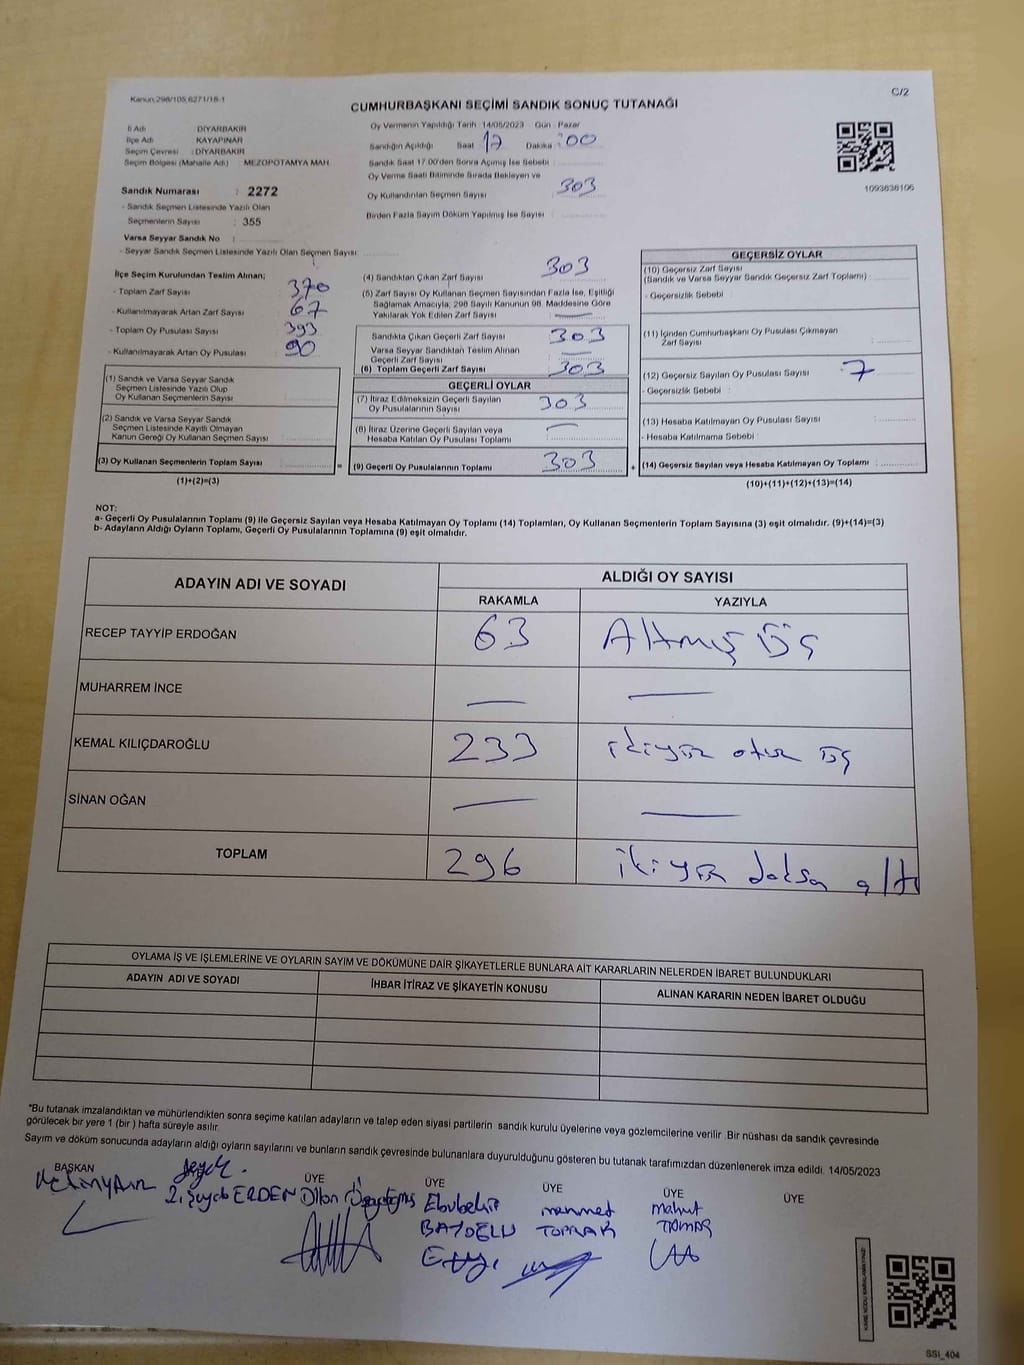 Kanun:298/105;6271/18-1
CUMHURBAŞKANI SEÇİMİ SANDIK SONUÇ TUTANAĞI
C/2
İl Adı : DİYARBAKIR
İlçe Adı : KAYAPINAR
Seçim Çevresi : DİYARBAKIR
Seçim Bölgesi (Mahalle Adı) : MEZOPOTAMYA MAH.
Sandık Numarası : 2272
- Sandık Seçmen Listesinde Yazılı Olan
Seçmenlerin Sayısı : 355
Varsa Seyyar Sandık No :
- Seyyar Sandık Seçmen Listesinde Yazılı Olan Seçmen Sayısı:
Oy Vermenin Yapıldığı Tarih :14/05/2023 Gün : Pazar
Sandığın Açıldığı Saat 17 Dakika :00
Sandık Saat 17.00'den Sonra Açılmış İse Sebebi :
Oy Verme Saati Bitiminde Sırada Bekleyen ve
Oy Kullandırılan Seçmen Sayısı : 303
Birden Fazla Sayım Döküm Yapılmış İse Sayısı :
1093636106
İlçe Seçim Kurulundan Teslim Alınan;
- Toplam Zarf Sayısı : 370
- Kullanılmayarak Artan Zarf Sayısı : 67
- Toplam Oy Pusulası Sayısı : 393
- Kullanılmayarak Artan Oy Pusulası : 90
(1) Sandık ve Varsa Seyyar Sandık
Seçmen Listesinde Yazılı Olup
Oy Kullanan Seçmenlerin Sayısı :
(2) Sandık ve Varsa Seyyar Sandık
Seçmen Listesinde Kayıtlı Olmayan
Kanun Gereği Oy Kullanan Seçmen Sayısı :
(3) Oy Kullanan Seçmenlerin Toplam Sayısı :
(1)+(2)=(3)
(4) Sandıktan Çıkan Zarf Sayısı : 303
(5) Zarf Sayısı Oy Kullanan Seçmen Sayısından Fazla İse, Eşitliği
Sağlamak Amacıyla, 298 Sayılı Kanunun 98. Maddesine Göre
Yakılarak Yok Edilen Zarf Sayısı : —
Sandıkta Çıkan Geçerli Zarf Sayısı : 303
Varsa Seyyar Sandıktan Teslim Alınan
Geçerli Zarf Sayısı : —
(6) Toplam Geçerli Zarf Sayısı : 303
GEÇERLİ OYLAR
(7) İtiraz Edilmeksizin Geçerli Sayılan
Oy Pusulalarının Sayısı : 303
(8) İtiraz Üzerine Geçerli Sayılan veya
Hesaba Katılan Oy Pusulası Toplamı : —
(9) Geçerli Oy Pusulalarının Toplamı : 303
GEÇERSİZ OYLAR
(10) Geçersiz Zarf Sayısı
(Sandık ve Varsa Seyyar Sandık Geçersiz Zarf Toplamı) :
- Geçersizlik Sebebi :
(11) İçinden Cumhurbaşkanı Oy Pusulası Çıkmayan
Zarf Sayısı :
(12) Geçersiz Sayılan Oy Pusulası Sayısı : 7
- Geçersizlik Sebebi :
(13) Hesaba Katılmayan Oy Pusulası Sayısı :
- Hesaba Katılmama Sebebi :
(14) Geçersiz Sayılan veya Hesaba Katılmayan Oy Toplamı :
(10)+(11)+(12)+(13)=(14)
NOT:
a- Geçerli Oy Pusulalarının Toplamı (9) ile Geçersiz Sayılan veya Hesaba Katılmayan Oy Toplamı (14) Toplamları, Oy Kullanan Seçmenlerin Toplam Sayısına (3) eşit olmalıdır. (9)+(14)=(3)
b- Adayların Aldığı Oyların Toplamı, Geçerli Oy Pusulalarının Toplamına (9) eşit olmalıdır.
ADAYIN ADI VE SOYADI
ALDIĞI OY SAYISI
RAKAMLA YAZIYLA
RECEP TAYYİP ERDOĞAN 63 Altmış Üç
MUHARREM İNCE — —
KEMAL KILIÇDAROĞLU 233 ikiyüz otuz üç
SİNAN OĞAN — —
TOPLAM 296 ikiyüz doksan altı
OYLAMA İŞ VE İŞLEMLERİNE VE OYLARIN SAYIM VE DÖKÜMÜNE DAİR ŞİKAYETLERLE BUNLARA AİT KARARLARIN NELERDEN İBARET BULUNDUKLARI
ADAYIN ADI VE SOYADI İHBAR İTİRAZ VE ŞİKAYETİN KONUSU ALINAN KARARIN NEDEN İBARET OLDUĞU
*Bu tutanak imzalandıktan ve mühürlendikten sonra seçime katılan adayların ve talep eden siyasi partilerin sandık kurulu üyelerine veya gözlemcilerine verilir. Bir nüshası da sandık çevresinde
görülecek bir yere 1 (bir ) hafta süreyle asılır.
Sayım ve döküm sonucunda adayların aldığı oyların sayılarını ve bunların sandık çevresinde bulunanlara duyurulduğunu gösteren bu tutanak tarafımızdan düzenlenerek imza edildi. 14/05/2023
BAŞKAN ÜYE ÜYE ÜYE ÜYE ÜYE
ERDEN Dilan Ebubekir mehmet mahmut
TOPRAK
SSI_404